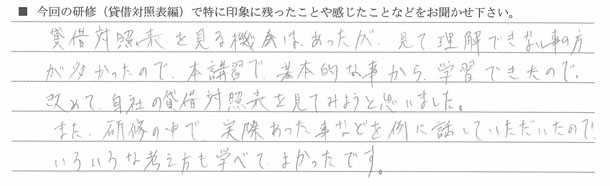 ■ 今回の研修（貸借対照表編）で特に印象に残ったことや感じたことなどをお聞かせ下さい。
貸借対照表を見る機会は、あったが、見て、理解できない事の方
が多かったので、本講習で、基本的な事から、学習できたので、
改めて、自社の貸借対照表を見てみようと思いました。
また、研修の中で、実際あった事などを例に話していただいたので、
いろいろな考え方も学べて、よかったです。